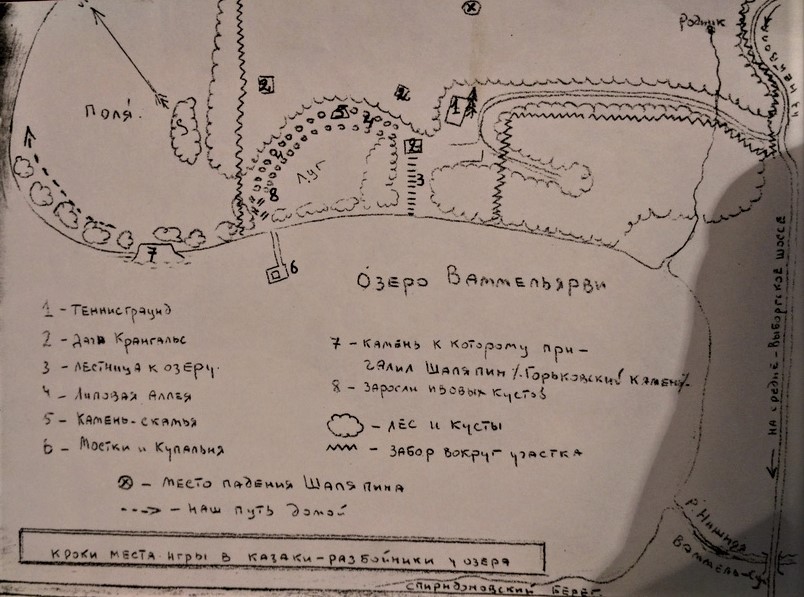 Родник
2
Поля.
2
1
5
4
2
Луг
3
8
7
6
Озеро Ваммельярви
1 - Теннисграунд
2 - Дача Крангальс
3 - Лестница к озеру.
4 - Липовая Аллея
5 - Камень-скамья
6 - Мостки и Купальня
7 - Камень к которому при-
чалил Шаляпин /"Горьковский камень"/
8 - Заросли ивовых кустов
- Лес и Кусты
- Забор вокруг участка
- Место падения Шаляпина
- Наш путь домой
Кроки места игры в казаки-разбойники у озера
На Средне-Выборгское шоссе
Ваммель-су
Спиридоновский берег.